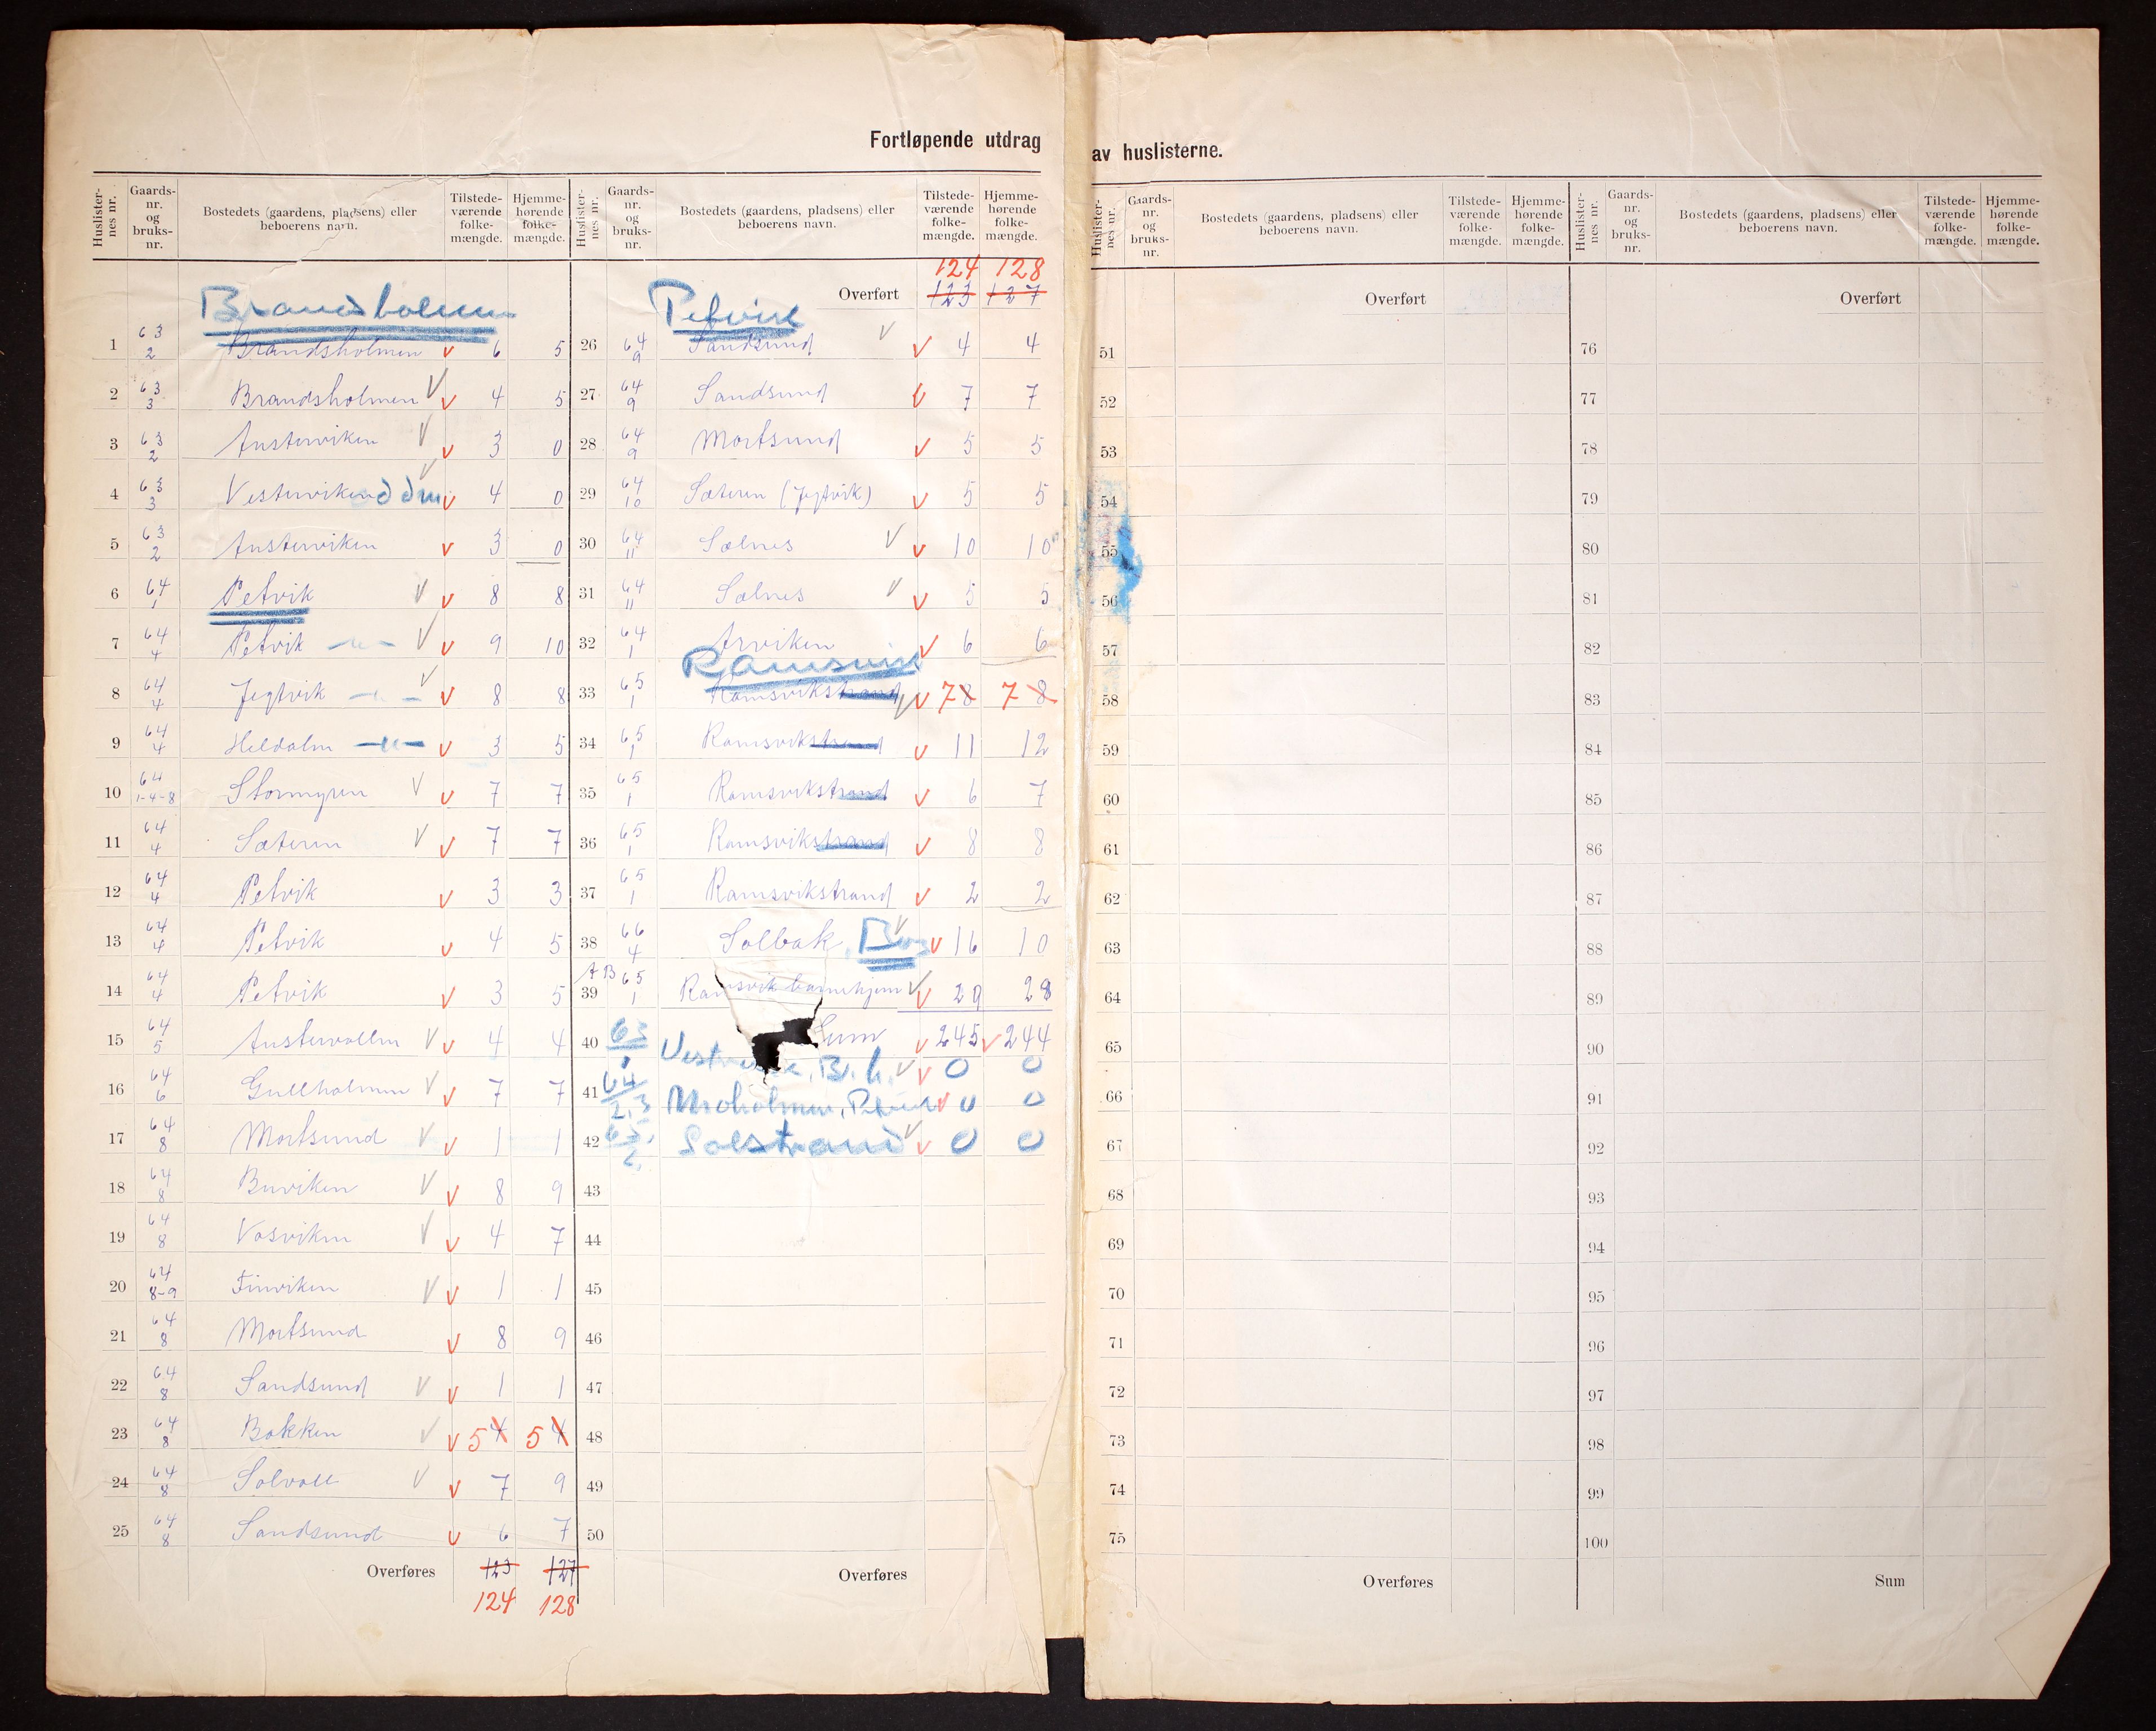 Fortløpende utdrag av huslisterne.
Huslisternes nr. Gaards-nr. og bruks-nr. Bostedets (gaardens, pladsens) eller beboerens navn. Tilstede-værende folke-mængde. Hjemme-hørende folke-mængde.
Brandsholmen
1 63/2 Brandsholmen v 6 5
2 63/3 Brandsholmen v v 4 5
3 63/2 Austerviken v v 3 0
4 63/3 Vesterviken v v 4 0
5 63/2 Austerviken v 3 0
6 64/1 Petvik v v 8 8
7 64/4 Petvik -"- v v 9 10
8 64/4 Jegtvik -"- v v 8 8
9 64/4 Heldalen -"- v 3 5
10 64/1-4-8 Stormyren v v 7 7
11 64/4 Sæteren v v 7 7
12 64/4 Petvik v 3 3
13 64/4 Petvik v 4 5
14 64/4 Petvik v 3 5
15 64/5 Austervollen v v 4 4
16 64/6 Gullholmen v v 7 7
17 64/8 Mortsund v v 1 1
18 64/8 Buviken v v 8 9
19 64/8 Vasviken v v 4 7
20 64/8-9 Finviken v v 1 1
21 64/8 Mortsund v 8 9
22 64/8 Sandsund v v 1 1
23 64/8 Bakken v v 5 4 5 4
24 64/8 Solvoll v v 7 9
25 64/8 Sandsund v 6 7
Overføres 123 127
124 128
Huslisternes nr. Gaards-nr. og bruks-nr. Bostedets (gaardens, pladsens) eller beboerens navn. Tilstede-værende folke-mængde. Hjemme-hørende folke-mængde.
124 128
Overført 123 127
Petvik
26 64/9 Sandsund v v 4 4
27 64/9 Sandsund v 7 7
28 64/9 Mortsund v 5 5
29 64/10 Sæteren (Jegtvik) v 5 5
30 64/11 Sælnes v v 10 10
31 64/11 Sælnes v v 5 5
32 64/1 Arviken v 6 6
Ramsvik
33 65/1 Ramsvikstrand v v 7 8 7 8
34 65/1 Ramsvikstrand v 11 12
35 65/1 Ramsvikstrand v 6 7
36 65/1 Ramsvikstrand v 8 8
37 65/1 Ramsvikstrand v 2 2
38 66/4 Solbak, v v 16 10
39 AB 65/1 Ramsvik barnehjem v v 29 28
Sum v 245 v 244
40 63/1 B.h. v v 0 0
41 64/2,3 v 0 0
42 Solstrand v v 0 0
43
44
45
46
47
48
49
50
Overføres
Huslisternes nr. Gaards-nr. og bruks-nr. Bostedets (gaardens, pladsens) eller beboerens navn. Tilstede-værende folke-mængde. Hjemme-hørende folke-mængde.
Overført
51
52
53
54
55
56
57
58
59
60
61
62
63
64
65
66
67
68
69
70
71
72
73
74
75
Overføres
Huslisternes nr. Gaards-nr. og bruks-nr. Bostedets (gaardens, pladsens) eller beboerens navn. Tilstede-værende folke-mængde. Hjemme-hørende folke-mængde.
Overført
76
77
78
79
80
81
82
83
84
85
86
87
88
89
90
91
92
93
94
95
96
97
98
99
100
Sum